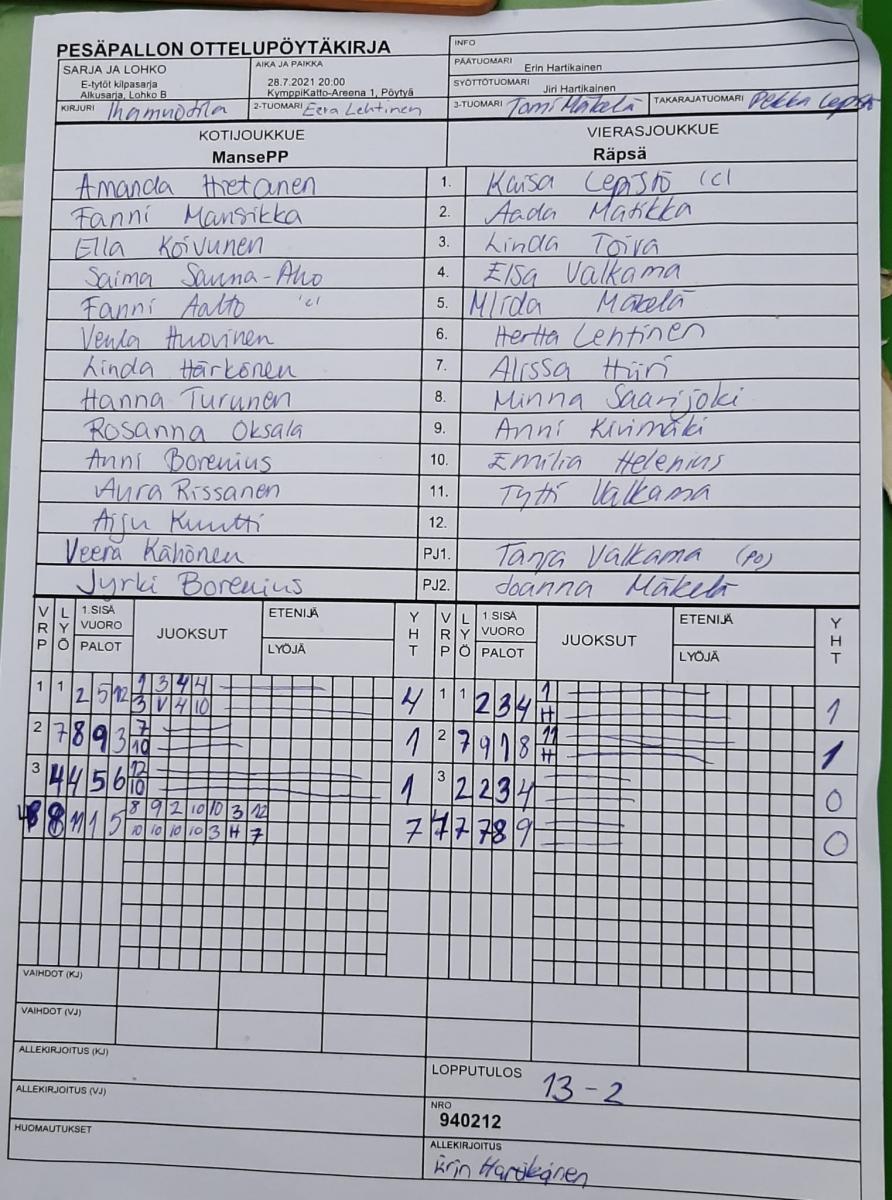 PESÄPALLON OTTELUPÖYTÄKIRJA
INFO
SARJA JA LOHKO
E-tytöt kilpasarja
Alkusarja, Lohko B
AIKA JA PAIKKA
28.7.2021 20:00
KymppiKatto-Areena 1, Pöytyä
PÄÄTUOMARI Erin Hartikainen
SYÖTTÖTUOMARI Jiri Hartikainen
KIRJURI Ihamuotila 2-TUOMARI Eera Lehtinen 3-TUOMARI Tomi Mäkelä TAKARAJATUOMARI Pekka Lepistö
KOTIJOUKKUE VIERASJOUKKUE
MansePP Räpsä
Amanda Hietanen 1. Kaisa Lepistö (c)
Fanni Mansikka 2. Aada Matikka
Ella Koivunen 3. Linda Toiva
Saima Sauna-Aho 4. Elsa Valkama
Fanni Aalto (c) 5. Miida Mäkelä
Venla Huovinen 6. Hertta Lehtinen
Linda Härkönen 7. Alissa Hiiri
Hanna Turunen 8. Minna Saarijoki
Rosanna Oksala 9. Anni Kivimäki
Anni Borenius 10. Emilia Helenius
Aura Rissanen 11. Tytti Valkama
Aiju Kuutti 12.
Veera Kähönen PJ1. Tanja Valkama (PO)
Jyrki Borenius PJ2. Joanna Mäkelä
VRP LYÖ 1.SISÄ VUORO PALOT JUOKSUT ETENIJÄ LYÖJÄ YHT VRP LYÖ 1.SISÄ VUORO PALOT JUOKSUT ETENIJÄ LYÖJÄ YHT
1 1 2 5 12 1 3 4 4 4 1 1 2 3 4 1 1
3 V 4 10 H
2 7 8 9 3 7 1 2 7 9 1 8 11 1
10 H
3 4 4 5 6 12 1 3 2 2 3 4 0
10
8 11 1 5 8 9 2 10 10 3 12 7 4 7 7 8 9 0
10 10 10 10 3 H 7
VAIHDOT (KJ)
VAIHDOT (VJ)
ALLEKIRJOITUS (KJ)
LOPPUTULOS 13-2
ALLEKIRJOITUS (VJ)
NRO
940212
HUOMAUTUKSET
ALLEKIRJOITUS
Erin Hartikainen